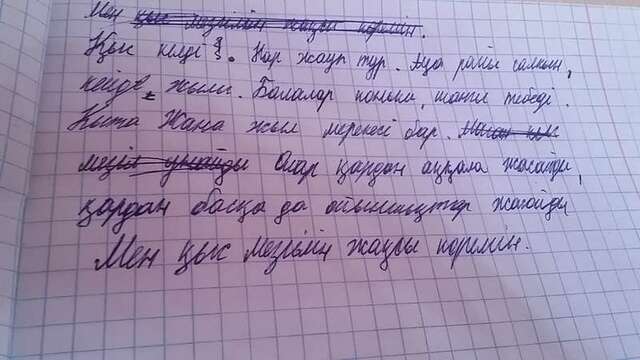 Мен қыс мезгілін жақсы көремін.
Қыс келді. Қар жауып тұр. Ауа райы салқын,
кейде жылы. Балалар коньки, шаңғы тебеді.
Қыста Жаңа жыл мерекесі бар.
Олар қардан аққала жасайды,
қардан басқа да ойыншықтар жасайды
Мен қыс мезгілін жақсы көремін.